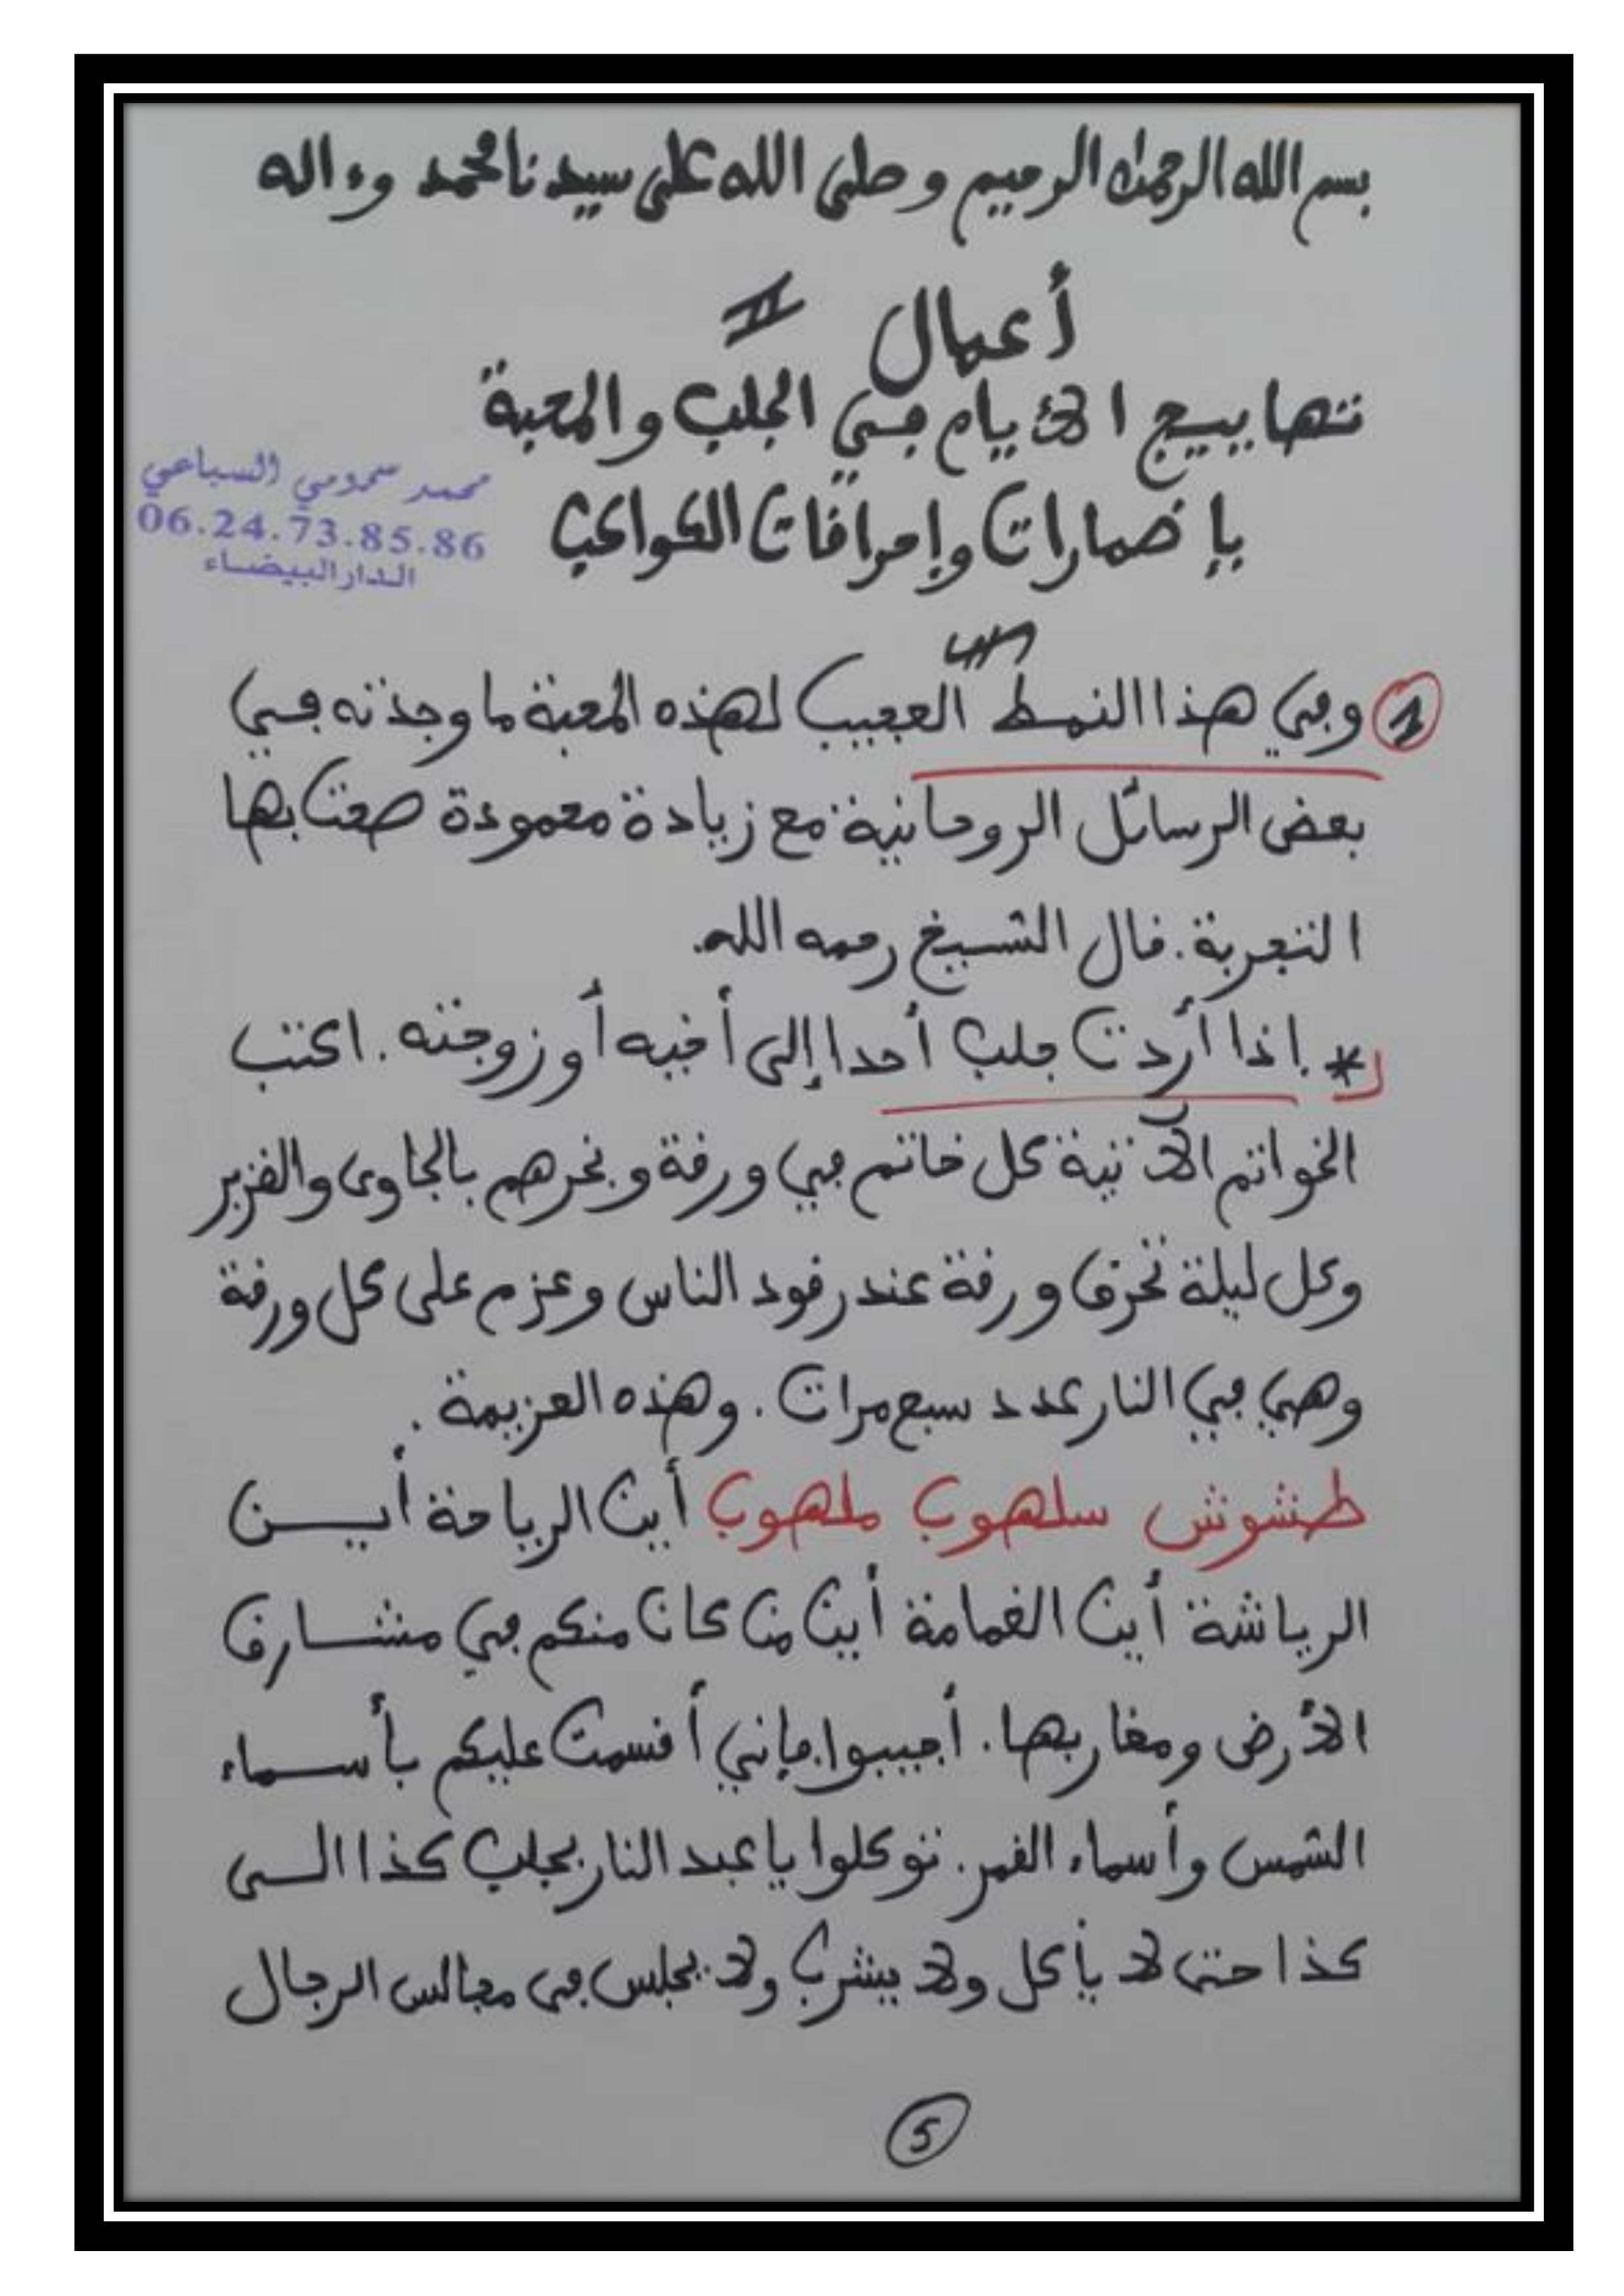 بسم الله الرحمن الرحيم وصلى الله على سيدنا محمد وءاله
أعمال II
تهاييج الأيام في الجلب والمحبة
بإضمارات وإحراقات الكواكب
محمد سحمومي السباعي
06.24.73.85.86
الدار البيضاء
1 وفي هذا النمط العجيب لهذه المحبة ما وجدته في
بعض الرسائل الروحانية مع زيادة محمودة صحت بها
التجربة. قال الشيخ رحمه الله.
* إذا أردت جلب أحدا إلى أخيه أو زوجته. اكتب
الخواتم الآتية كل خاتم في ورقة وبخرهم بالجاوى والقزبر
وكل ليلة تحرق ورقة عند رقود الناس وعزم على كل ورقة
وهي في النار عدد سبع مرات. وهذه العزيمة.
طشوش سلهوب ملهوب أين الرياحة أين
الرياشة أين الغمامة أين من كان منكم في مشارق
الأرض ومغاربها. أجيبوا فإني أقسمت عليكم بأسماء
الشمس وأسماء القمر. توكلوا يا عبد النار بجلب كذا الى
كذا حتى لا يأكل ولا يشرب ولا يجلس في مجالس الرجال
5